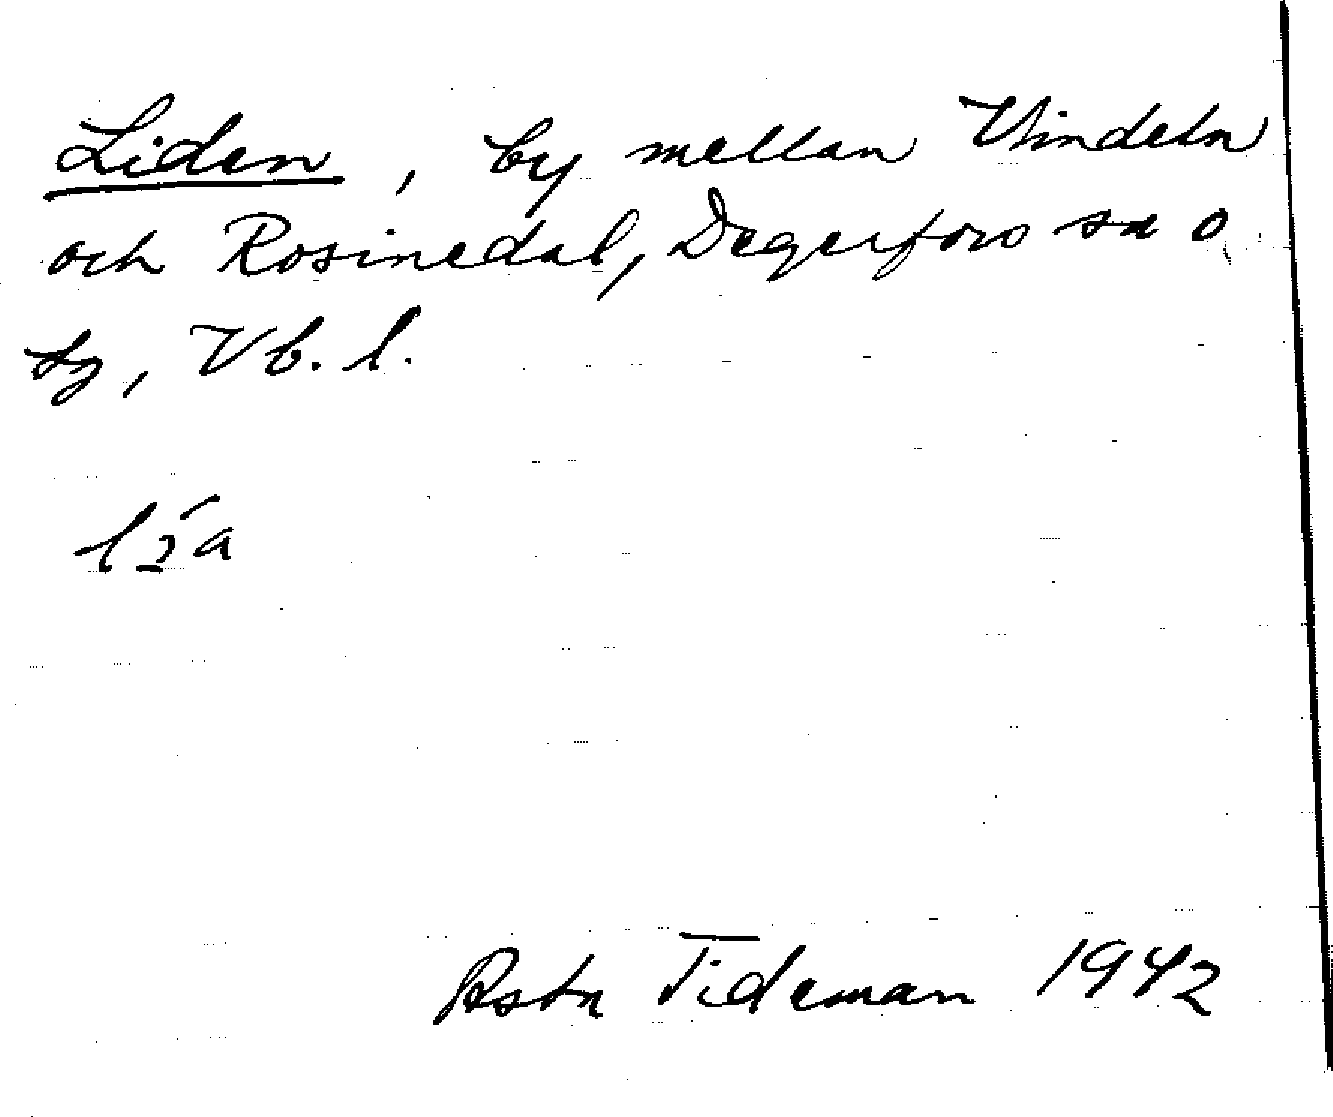 Liden, by mellan Vindeln
och Rosinedal, Degerfors sn o
tg, Vb. l.
Asta Tideman 1942